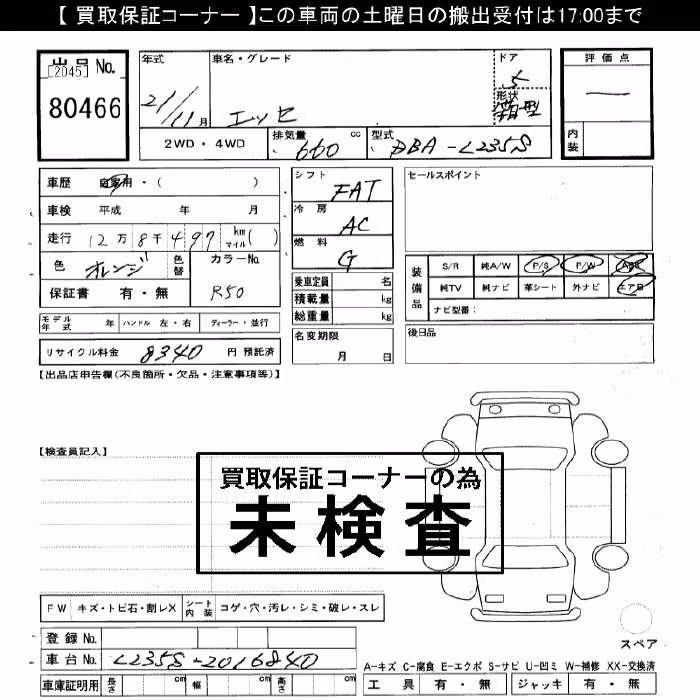 【 買取保証コーナー 】この車両の土曜日の搬出受付は17:00まで
出品No.
[2045]
80466
年式
21/11月
車名・グレード
エッセ
ドア
5
形状
箱型
評価点
—
内装
2WD・4WD
排気量
660 cc
型式
DBA-L235S
車歴 自家用・( )
車検 平成 年 月
走行 12万8千497 km マイル( )
色 オレンジ 色替
カラーNo.
R50
保証書 有・無
シフト
FAT
冷房
AC
燃料
G
乗車定員 名
積載量 kg
総重量 kg
セールスポイント
装備品
S/R 純A/W P/S P/W ABS
純TV 純ナビ 革シート 外ナビ エアB
ナビ型番:
モデル年式 年 ハンドル 左・右 ディーラー・並行
リサイクル料金 8340 円 預託済
名変期限
月 日
後日品
【出品店申告欄(不良箇所・欠品・注意事項等)】
【検査員記入】
買取保証コーナーの為
未検査
FW キズ・トビ石・割レX シート内装 コゲ・穴・汚レ・シミ・破レ・スレ
登録No.
車台No. L235S-2016840
車庫証明用 長さ cm 幅 cm 高さ cm
スペア
A-キズ C-腐食 E-エクボ S-サビ U-凹ミ W-補修 XX-交換済
工具 有・無 ジャッキ 有・無